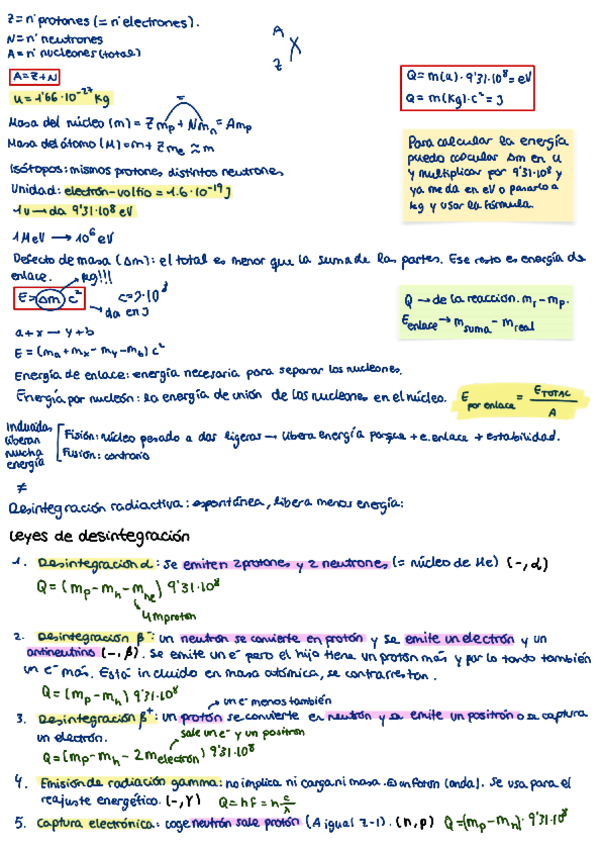 Z = nº protones (= nº electrones).
N = nº neutrones
A = nº nucleones (total)
A
X
Z
A = Z + N
u = 1'66 · 10^-27 kg
Q = m(u) · 9'31 · 10^8 = eV
Q = m(kg) · c^2 = J
Masa del núcleo (m) = Z mp + N mn = A mp
Masa del átomo (M) = m + Z me ≈ m
Isótopos: mismos protones distintos neutrones
Unidad: electrón-voltio = 1.6 · 10^-19 J
1u → da 9'31 · 10^8 eV
Para calcular la energía
puedo calcular Δm en u
y multiplicar por 9'31·10^8 y
ya me da en eV o pasarlo a
kg y usar la fórmula.
1 MeV → 10^6 eV
Defecto de masa (Δm): el total es menor que la suma de las partes. Ese resto es energía de
enlace. kg!!!
E = Δm c^2
c = 3·10^8
da en J
Q → de la reacción. mr - mp.
E enlace → m suma - m real
a + x → y + b
E = (ma + mx - my - mb) c^2
Energía de enlace: energía necesaria para separar los nucleones.
Energía por nucleón: la energía de unión de los nucleones en el núcleo.
E por enlace = E TOTAL / A
Inducidas
liberan
mucha
energía
Fisión: núcleo pesado a dos ligeros → libera energía porque + e. enlace + estabilidad.
Fusión: contrario
≠
Desintegración radiactiva: espontánea, libera menos energía:
Leyes de desintegración
1. Desintegración α: se emiten 2 protones y 2 neutrones (= núcleo de He) (-, α)
Q = (mp - mh - mhe) 9'31·10^8
4 mproton
2. Desintegración β-: un neutrón se convierte en protón y se emite un electrón y un
antineutrino (-, β). Se emite un e- pero el hijo tiene un protón más y por lo tanto también
un e- más. Está incluido en masa atómica, se contrarrestan.
Q = (mp - mh) 9'31·10^8
un e- menos también
3. Desintegración β+: un protón se convierte en neutrón y se emite un positrón o se captura
un electrón.
sale un e- y un positrón
Q = (mp - mh - 2 melectrón) 9'31·10^8
4. Emisión de radiación gamma: no implica ni carga ni masa. Es un fotón (onda). Se usa para el
reajuste energético. (-, γ) Q = h f = h c/λ
5. Captura electrónica: coge neutrón sale protón (A igual Z-1). (n, p) Q = (mp - mh) · 9'31·10^8